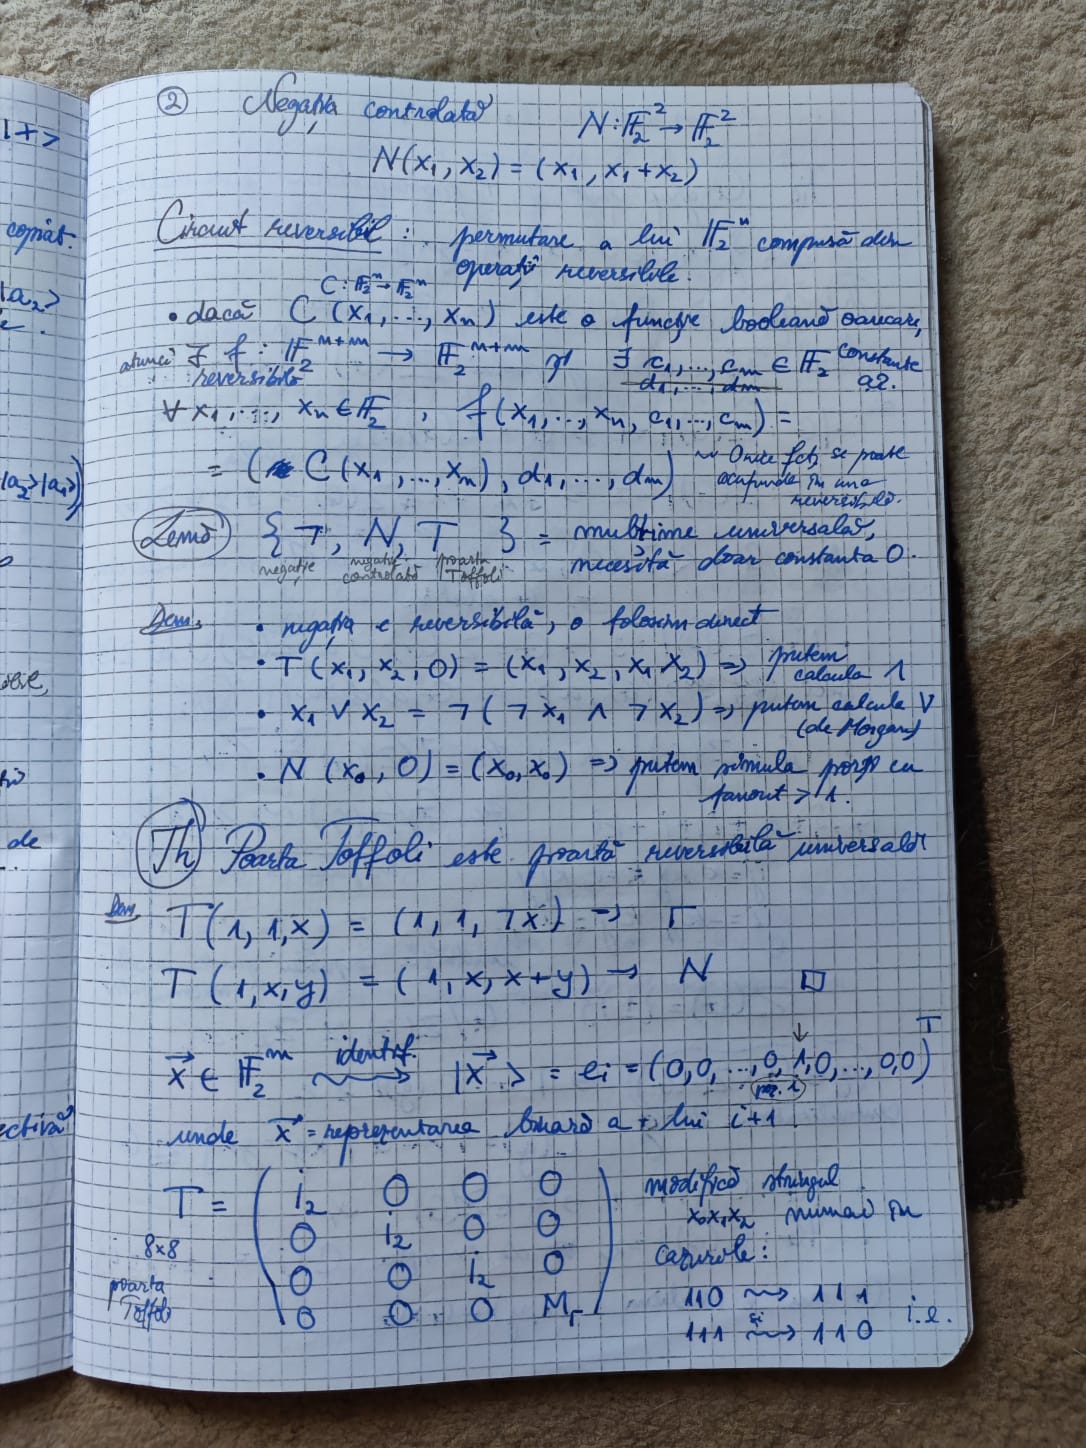 |+>
copiat.
|a₂>
|a₂>|a₁>)
de
ectivă
② Negația controlată N : 𝔽₂² → 𝔽₂²
N(x₁, x₂) = (x₁, x₁+x₂)
Circuit reversibil : permutare a lui 𝔽₂ⁿ compusă din
operații reversibile.
C : 𝔽₂ⁿ → 𝔽₂ᵐ
• dacă C(x₁, ..., xₙ) este o funcție booleană oarecare,
atunci ∃ f : 𝔽₂ⁿ⁺ᵐ → 𝔽₂ⁿ⁺ᵐ și ∃ c₁, ..., cₘ ∈ 𝔽₂ constante
reversibilă d₁, ..., dₘ a.î.
∀ x₁, ..., xₙ ∈ 𝔽₂ , f(x₁, ..., xₙ, c₁, ..., cₘ) =
= (C(x₁, ..., xₙ), d₁, ..., dₘ) ~ Orice fct. se poate
scufunda în una
reversibilă.
Lemă { ¬, N, T } = mulțime universală,
negație negație controlată poarta Toffoli necesită doar constanta 0.
Dem. • negația e reversibilă, o folosim direct
• T(x₁, x₂, 0) = (x₁, x₂, x₁x₂) => putem calcula ∧
• x₁ ∨ x₂ = ¬(¬x₁ ∧ ¬x₂) => putem calcula ∨
(de Morgan)
• N(x₀, 0) = (x₀, x₀) => putem simula porți cu
fanout > 1.
Th Poarta Toffoli este poartă reversibilă universală
Dem. T(1, 1, x) = (1, 1, ¬x) → ¬
T(1, x, y) = (1, x, x+y) → N □
x⃗ ∈ 𝔽₂ᵐ identif. ⟿ |x⃗> = eᵢ = (0,0, ..., 0, 1, 0, ..., 0,0)ᵀ
↓ poz. i
unde x⃗ = reprezentarea binară a lui i+1
T = ( I₂ 0 0 0 modifică stringul
0 I₂ 0 0 x₀x₁x₂ numai în
8×8 0 0 I₂ 0 cazurile :
poarta Toffoli 0 0 0 M¬ ) 110 ⇝ 111
și
111 ⇝ 110 i.e.